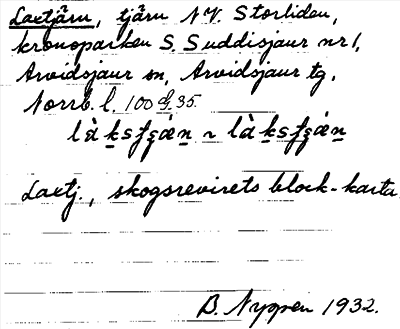 Laxtjärn, tjärn N.V. Storliden,
kronoparken S. Suddisjaur nr 1,
Arvidsjaur sn, Arvidsjaur tg,
Norrb. l. 100 35.
Laxtj., skogsrevirets block-karta
B. Nygren 1932.